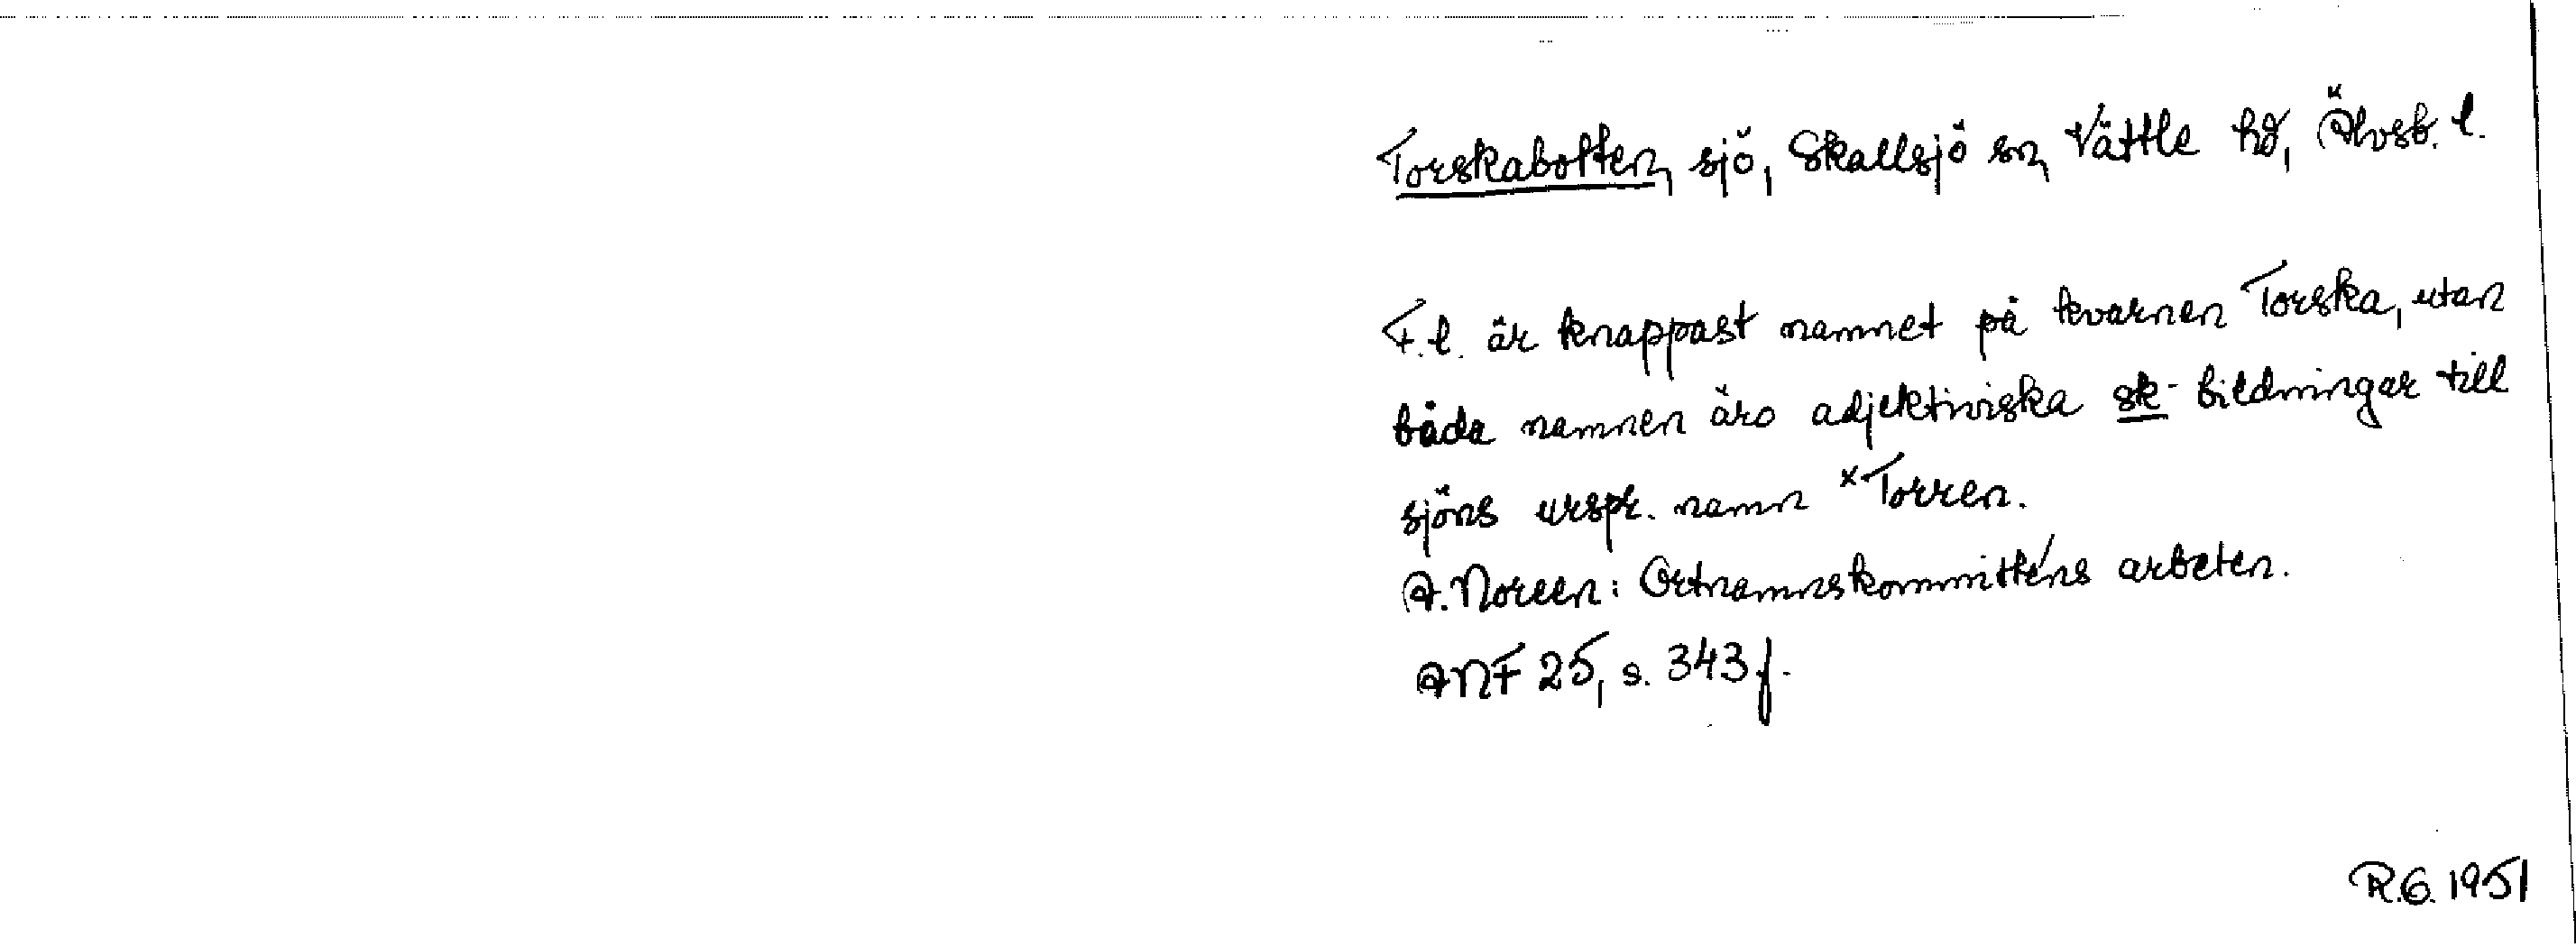 Torskabotten, sjö, Skallsjö sn, Vättle hd, Älvsb. l.
F.l. är knappast namnet på kvarnen Torska, utan
båda namnen äro adjektiviska sk-bildningar till
sjöns urspr. namn ˣTorren.
A. Noreen: Ortnamnskommitténs arbeten.
ANF 25, s. 343 f.
R.G. 1951